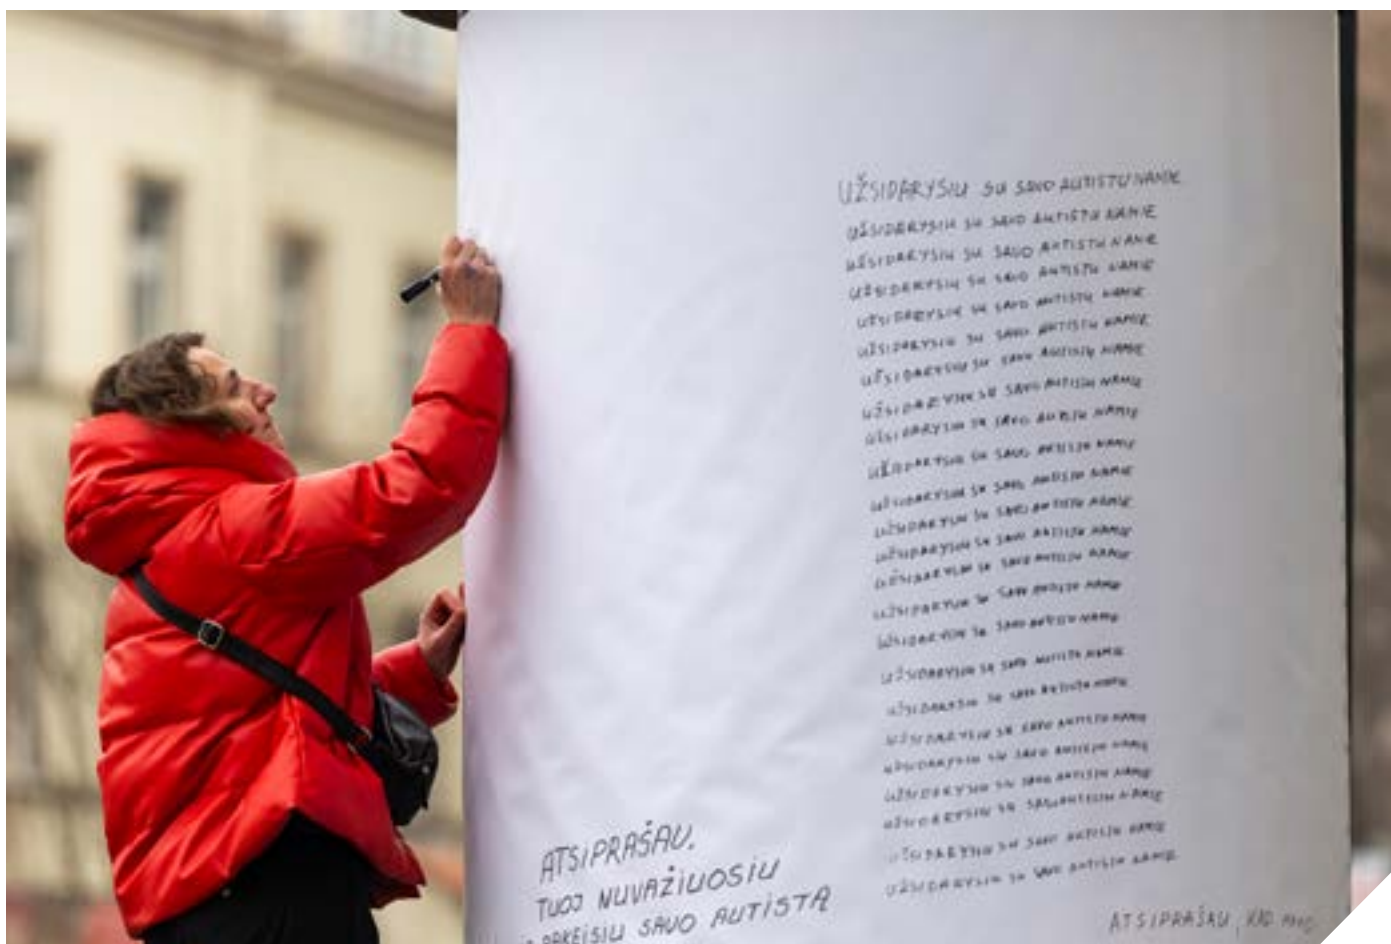 UŽSIDARYSIU SU SAVO AUTISTU NAMIE
UŽSIDARYSIU SU SAVO AUTISTU NAMIE
UŽSIDARYSIU SU SAVO AUTISTU NAMIE
UŽSIDARYSIU SU SAVO AUTISTU NAMIE
UŽSIDARYSIU SU SAVO AUTISTU NAMIE
UŽSIDARYSIU SU SAVO AUTISTU NAMIE
UŽSIDARYSIU SU SAVO AUTISTU NAMIE
UŽSIDARYSIU SU SAVO AUTISTU NAMIE
UŽSIDARYSIU SU SAVO AUTISTU NAMIE
UŽSIDARYSIU SU SAVO AUTISTU NAMIE
UŽSIDARYSIU SU SAVO AUTISTU NAMIE
UŽSIDARYSIU SU SAVO AUTISTU NAMIE
UŽSIDARYSIU SU SAVO AUTISTU NAMIE
UŽSIDARYSIU SU SAVO AUTISTU NAMIE
UŽSIDARYSIU SU SAVO AUTISTU NAMIE
UŽSIDARYSIU SU SAVO AUTISTU NAMIE
UŽSIDARYSIU SU SAVO AUTISTU NAMIE
UŽSIDARYSIU SU SAVO AUTISTU NAMIE
UŽSIDARYSIU SU SAVO AUTISTU NAMIE
UŽSIDARYSIU SU SAVO AUTISTU NAMIE
UŽSIDARYSIU SU SAVO AUTISTU NAMIE
UŽSIDARYSIU SU SAVO AUTISTU NAMIE
UŽSIDARYSIU SU SAVO AUTISTU NAMIE
UŽSIDARYSIU SU SAVO AUTISTU NAMIE
ATSIPRAŠAU,
TUOJ NUVAŽIUOSIU
PAKEISIU SAVO AUTISTĄ
ATSIPRAŠAU, KAD